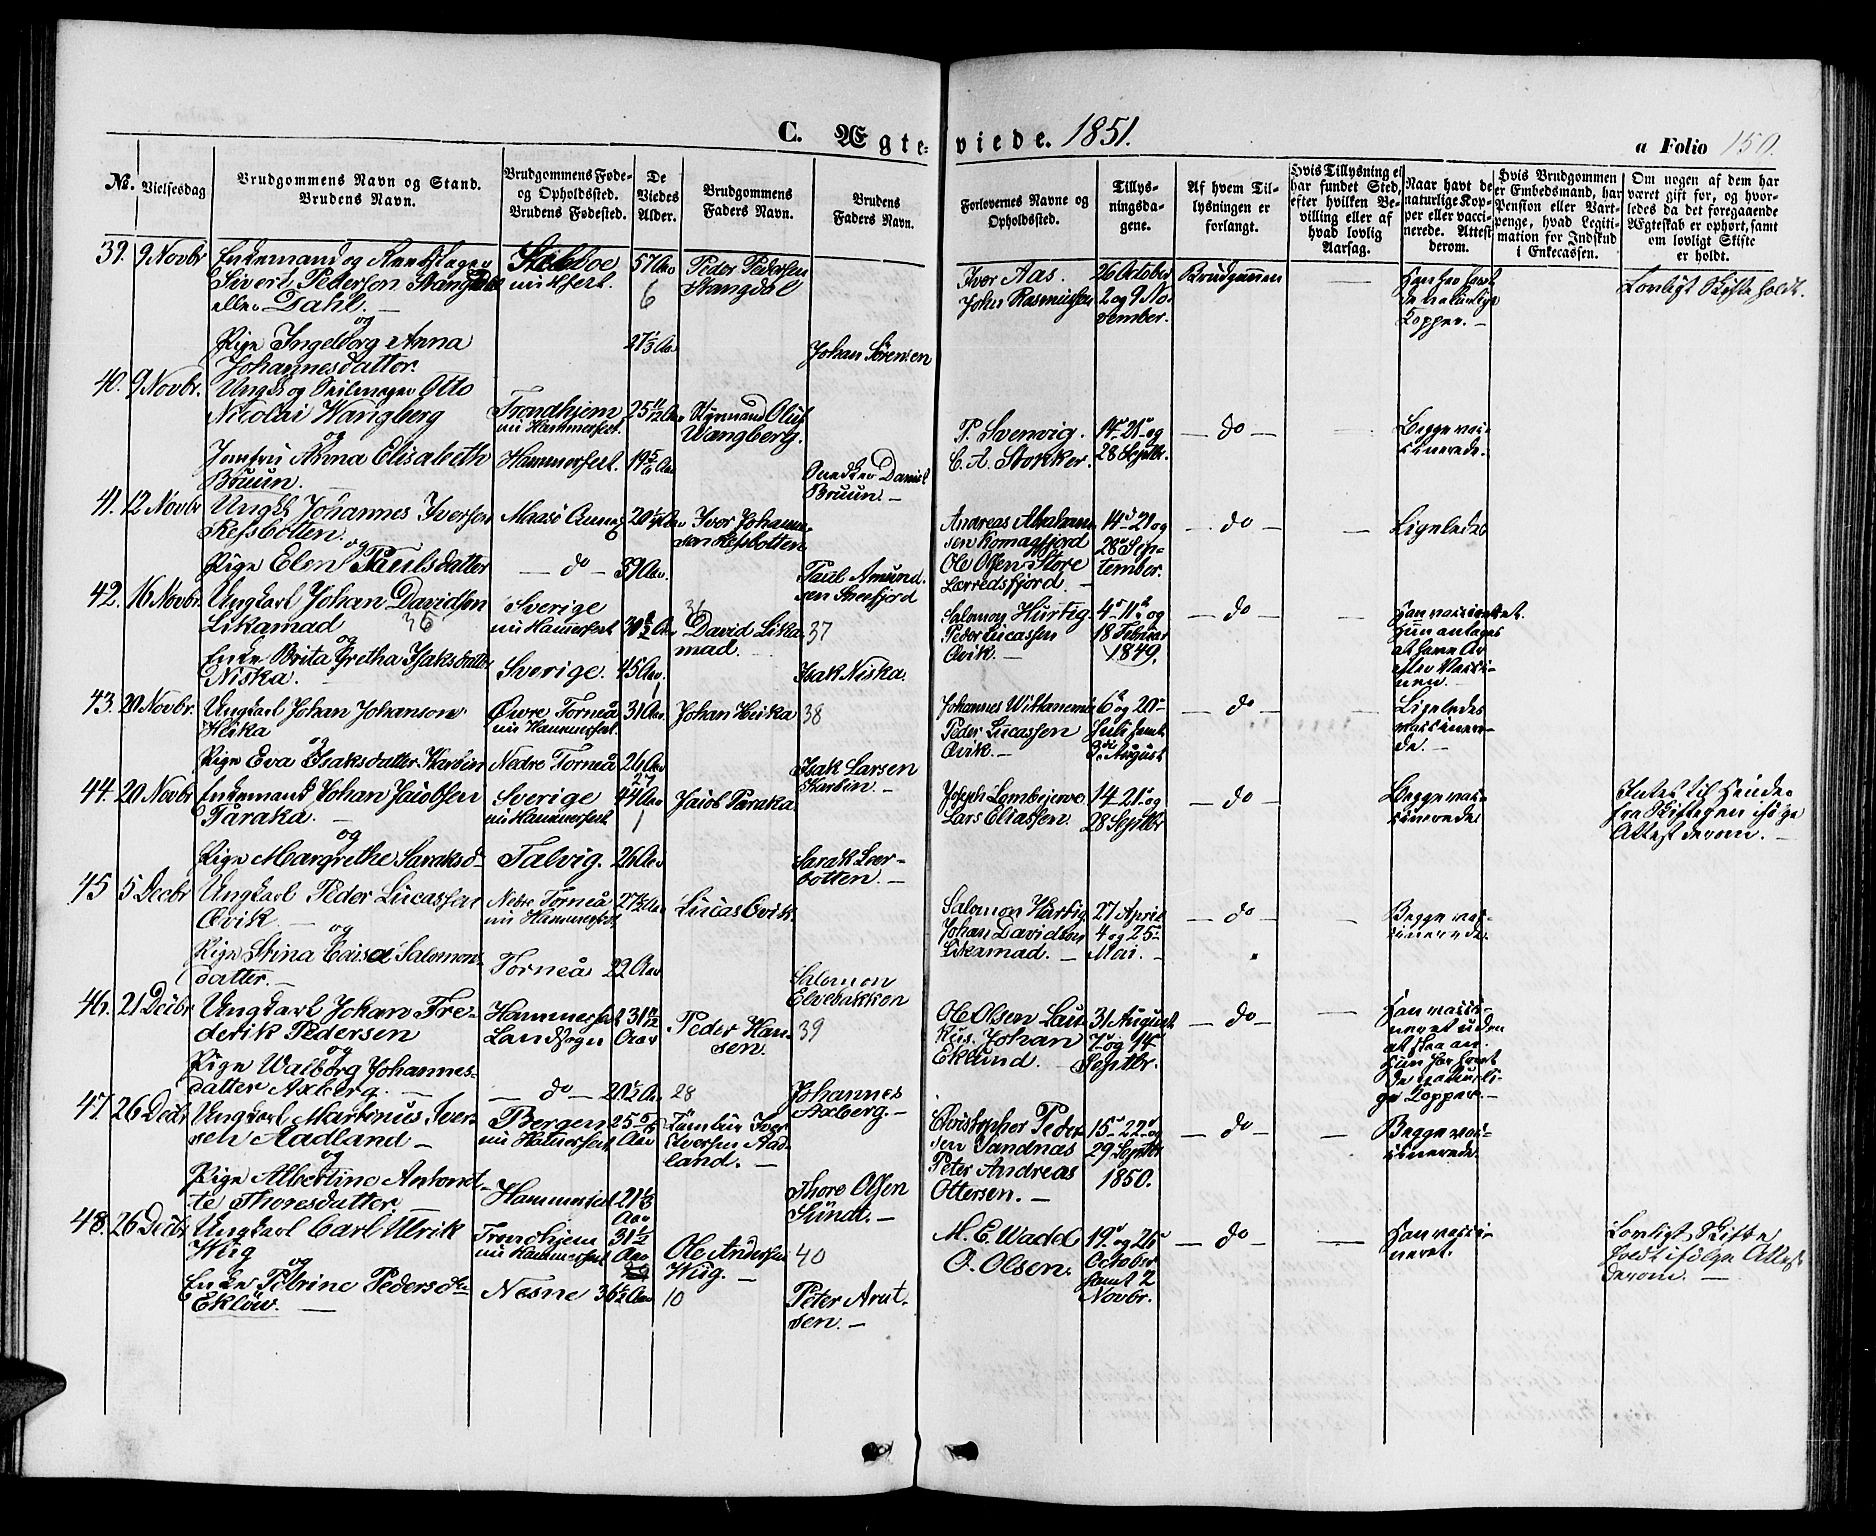 C. Ægteviede. 1851.
a Folio 150.
No. Vielsesdag
Brudgommens Navn og Stand.
Brudens Navn.
Brudgommens Føde-
og Opholdssted.
Brudens Fødested.
De
Viedes
Alder.
Brudgommens
Faders Navn.
Brudens
Faders Navn.
Forlovernes Navne og
Opholdssted.
Tillys-
ningsda-
gene.
Af hvem Til-
lysningen er
forlangt.
Hvis Tillysning ei
har fundet Sted,
efter hvilken Be-
villing eller af
hvad lovlig
Aarsag.
Naar havt de
naturlige Kop-
per eller vacci-
nerede. Attest
derom.
Hvis Brudgommen
er Embedsmand, har
Pension eller Vart-
penge, hvad Legiti-
mation for Indskud
i Enkecassen.
Om nogen af dem har
været gift før, og hvor-
ledes da det foregaaende
Ægteskab er ophørt, samt
om lovligt Skifte
er holdt.
39. 9 Novbr
Enkemand og
Sivert Pedersen Stangdal
eller Dahl. —
og
Pige Ingeborg Anna
Johannesdatter.
57 Aar
6
27 1/3 Aar
Peder Pedersen
Stangdal
Johan Sørensen
Ivor Aas.
John Rasmussen
26 October
2 og 9 No-
vember.
Brudgommen
—
Han har havt
de naturlige
Kopper. —
Lovligt Skifte holdt.
40. 9 Novbr.
Ungk. og Seilmager Otto
Nicolai Wangberg
og
Jomfru Anna Elisabeth
Bruun. —
Trondhjem
nu Hammerfest.
Hammerfest.
25 11/12 Aar
19 5/6 Aar
Styrmand Oluf
Wangberg.
Snedker Daniel
Bruun. —
P. Svenvig.
C. A. Stokker.
14. 21 og
28 Septbr.
— do —
—
Begge vac-
cinerede.
41. 12 Novbr
Ungk. Johannes Iversen
Refsbotten.
og
Pige Elen Paulsdatter
Maasø Anneg
— do —
20 1/2 Aar
39 Aar.
Ivor Johanne-
sen Refsbotten
Paul Amund-
sen Sneefjord
Andreas Abraham-
sen Komagfjord
Ole Olsen Store
Lærredsfjord —
14 21 og
28 Sep-
tember.
— do —
—
Ligeledes
42. 16 Novbr.
Ungkarl Johan Davidsen
Likamad 36
og
Enke Brita Gretha Isaksdatter
Niska. —
Sverige
nu Hammerfest
Sverige.
30 1/2 Aar
45 Aar.
36
David Lika-
mad.
37
Isak Niska.
Salomon Hurtig
Peder Lucassen
Qvik. —
4. 11 og
18 Februar
1849.
— do —
—
Han vaccineret.
Hun antages
at have Ar
efter Vacci-
nen. —
43. 20 Novbr.
Ungkarl Johan Johanson
Heika
og
Pige Eva Isaksdatter Karbin
Øvre Torneå
nu Hammerfest.
Nedre Torneå
31 Aar
26 Aar
Johan Heika
38
Isak Larsen
Karbin —
Johannes Wittaneme
Peder Lucassen
Qvik. —
6 og 20
Juli samt
3 August
— do —
—
Ligeledes
vaccinere-
de. —
44. 20 Novbr
Enkemand Johan Jacobsen
Paraka. —
og
Pige Margrethe Saraksd.
Sverige
nu Hammerfest
Talvig.
27
44 Aar
26 Aar
Jacob Paraka
Sarak Leer-
botten. —
Joseph Lombejerve
Lars Eliassen
14 21 og
28 Septbr
— do —
—
Begge vac-
cinerede
Intet til Hinder
fra Skiftegn ifølge
Attest derom. —
45 5 Decbr
Ungkarl Peder Lucassen
Qvik. —
og
Pige Stina Caisa Salomons-
datter. —
Nedre Torneå
nu Hammerfest
Torneå
27 1/2 Aar
22 Aar
Lucas Qvik.
Salomon
Elvebakken
Salomon Hurtig
Johan Davidsen
Likamad. —
27 April
4 og 25
Mai. —
— do —
—
Begge vac-
cinerede.
46. 21 Decbr
Ungkarl Johan Fre-
derik Pedersen
og
Pige Walborg Johannes-
datter Axberg. —
Hammerfest
Landsogn
— do —
31 11/12
Aar
20 1/2 Aar
Peder Han-
sen.
28
39
Johannes
Axberg. —
Ole Olsen Laus-
kus. Johan
Eklund. —
31 August
7 og 14
Septbr.
— do —
—
Han vacci-
neret uden
at slaa an.
Hun har havt
de naturli-
ge Kopper. —
47. 26 Decbr
Ungkarl Martinus Iver-
sen Aadland —
og
Pige Albertine Antonet-
te Thoresdatter.
Bergen
nu Hammerfest
Hammerfest
25 5/6
Aar
21 1/3
Aar
Tambur Iver
Iversen Aad-
land. —
Thore Olsen
Sundt. —
Christopher Peder-
sen Sandnæs
Peter Andreas
Ottersen. —
15 22 og
29 Septbr
1850.
— do —
—
Begge vac-
cinerede.
48. 26 Decbr
Ungkarl Carl Ulrik
Wiig
og
Enke Petrine Pedersdtr
Ekløw. —
Trondhjem
nu Hammerfest
Nesne
31 1/2
Aar
36 1/2 Aar
Ole Andersen
Wiig. —
10
40
Peter Arnt-
sen. —
M. E. Wadd
O. Olsen.
19. og 26
October
samt 2
Novbr.
— do —
—
Han vacci-
neret.
Lovligt Skifte
holdt ifølge Attest
derom. —